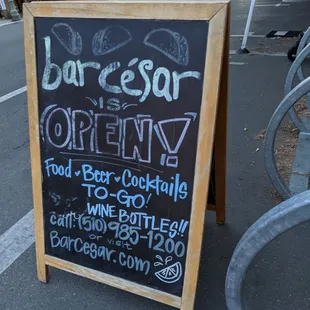 barcésar
IS
OPEN!
Food • Beer • Cocktails
TO-GO!
WINE BOTTLES!!
call: (510) 985-1200
or visit
Barcesar.com